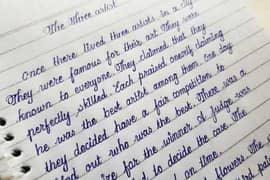 The Three artist
Once there lived three artists in a city
They were famous for their art. They were
known to everyone. They claimed that they
perfectly skilled. Each praised claiming
he was the best artist among them. One day
they decided have a fair competition to
out who was the best. There was a
for the winner. A judge was
to decide the case. The
on time.
flowers. The